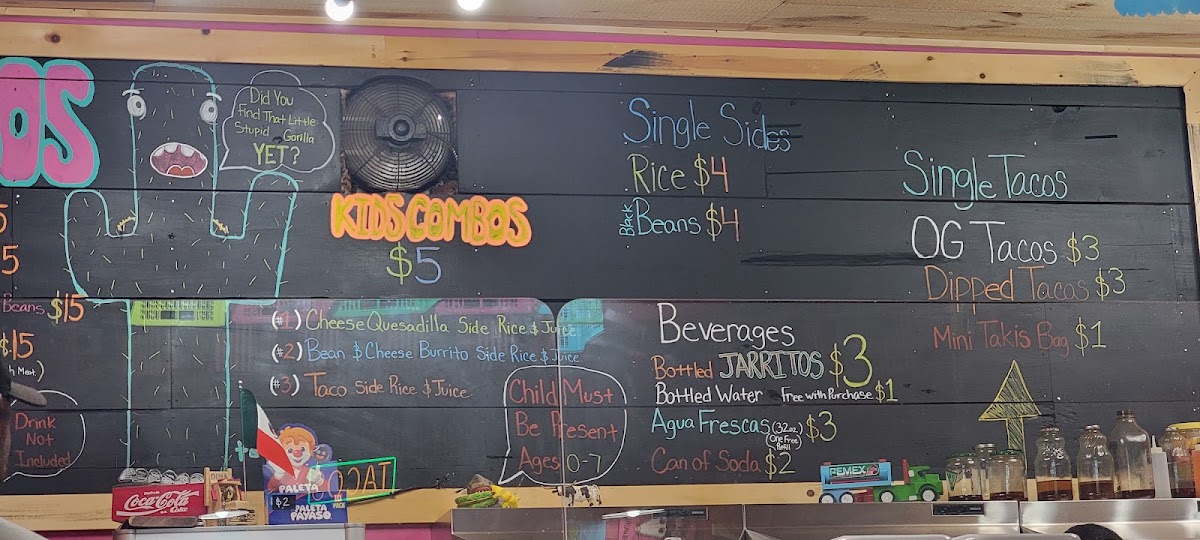 OS
5
5
Beans $15
$15
h Meat.)
Drink
Not
Included
Did You
Find That Little
Stupid Gorilla
YET?
KIDS COMBOS
$5
(#1) Cheese Quesadilla Side Rice & Juice
(#2) Bean & Cheese Burrito Side Rice & Juice
(#3) Taco Side Rice & Juice
Child Must
Be Present
Ages 0-7
Single Sides
Rice $4
Black Beans $4
Beverages
Bottled JARRITOS $3
Bottled Water Free with Purchase $1
Agua Frescas (32oz) One Free Refill $3
Can of Soda $2
Single Tacos
OG Tacos $3
Dipped Tacos $3
Mini Takis Bag $1
Coca-Cola
PALETA
$2
PALETA
PAYASO
TACO
PEMEX